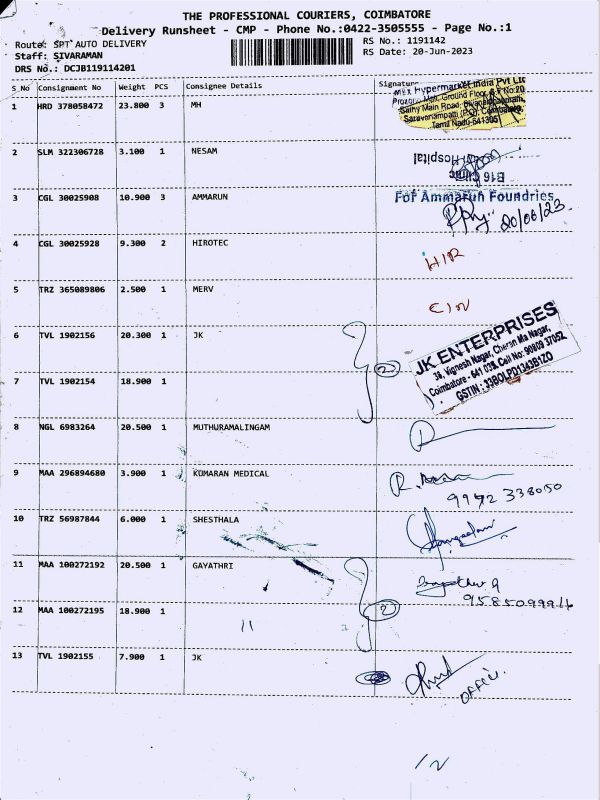 THE PROFESSIONAL COURIERS, COIMBATORE
Delivery Runsheet - CMP - Phone No.:0422-3505555 - Page No.:1
Route: SPT AUTO DELIVERY
RS No.: 1191142
Staff: SIVARAMAN
RS Date: 20-Jun-2023
DRS No.: DCJB119114201
S_No Consignment No Weight PCS Consignee Details Signature
1 HRD 378058472 23.800 3 MH
Hypermarket India Pvt Ltd
Mall, Ground Floor
Sathy Main Road
Saravanampatti (P.O), Coimbatore,
Tamil Nadu-641305
2 SLM 322306728 3.100 1 NESAM
B16 Clinic
Hospital
3 CGL 30025908 10.900 3 AMMARUN
For Ammarun Foundries
20/06/23
4 CGL 30025928 9.300 2 HIROTEC
HIR
5 TRZ 365089806 2.500 1 MERV
6 TVL 1902156 20.300 1 JK
2
JK ENTERPRISES
38, Vignesh Nagar, Cheran Ma Nagar,
Coimbatore - 641 035. Cell No: 90809 37052
GSTIN : 33BOLPD1343B1ZO
7 TVL 1902154 18.900 1
8 NGL 6983264 20.500 1 MUTHURAMALINGAM
9 MAA 296894680 3.900 1 KUMARAN MEDICAL
9942 338050
10 TRZ 56987844 6.000 1 SHESTHALA
11 MAA 100272192 20.500 1 GAYATHRI
2
12 MAA 100272195 18.900 1
13 TVL 1902155 7.900 1 JK